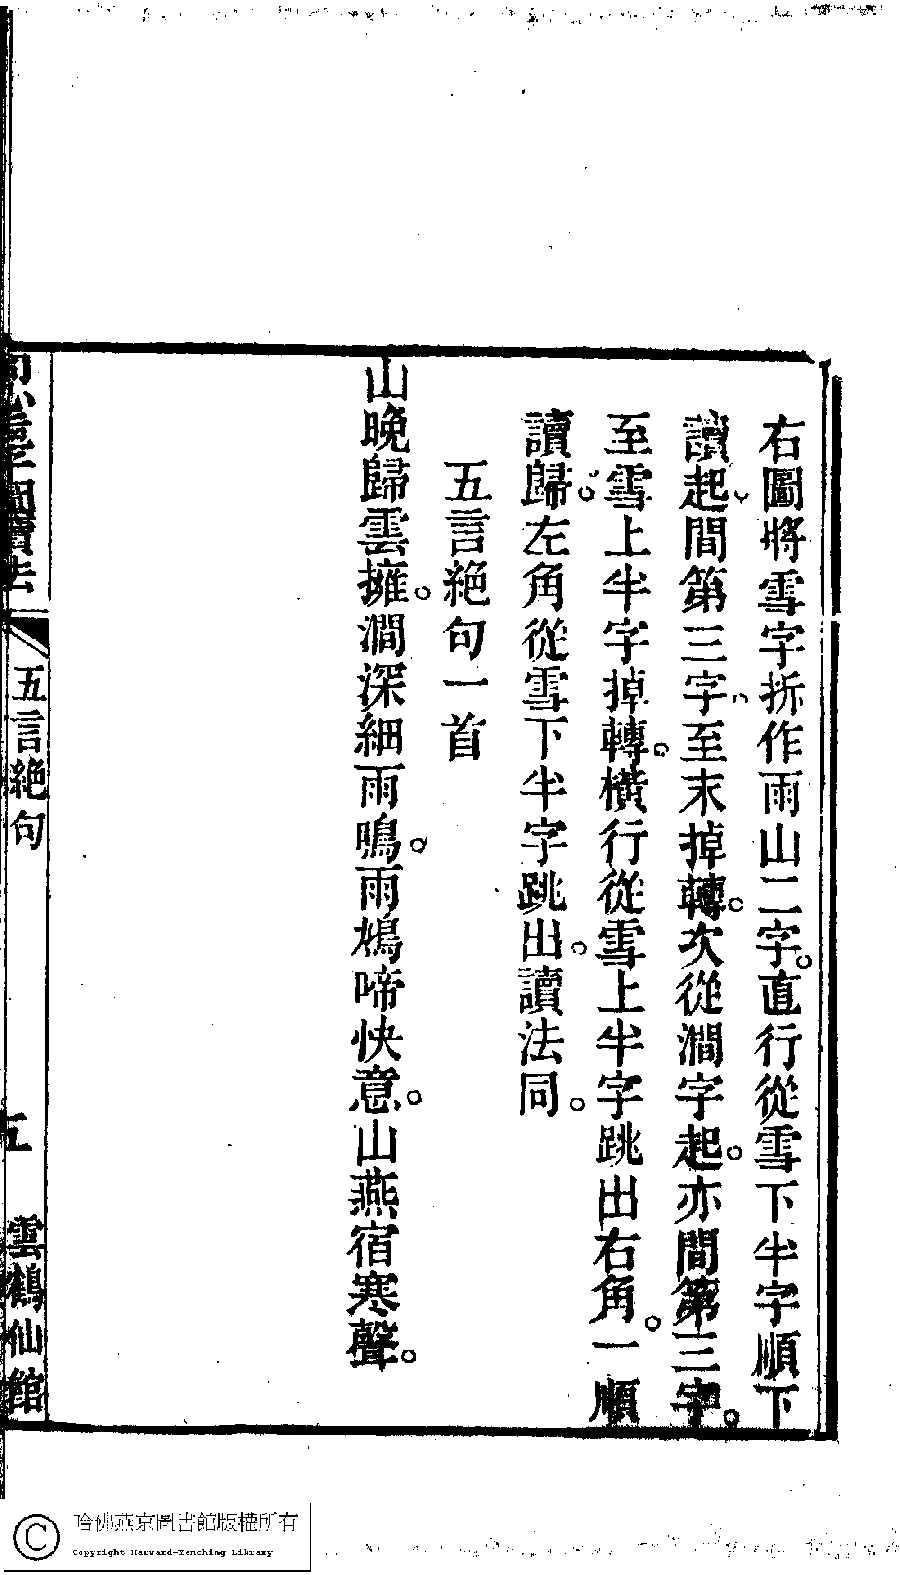 右圖將雪字拆作雨山二字。直行從雪下半字順下
讀起。間第三字。至末掉轉。次從澗字起。亦間第三字。
至雪上半字掉轉。橫行從雪上半字跳出右角。一順
讀歸。左角從雪下半字跳出。讀法同。
五言絶句一首
山晚歸雲擁。澗深細雨鳴。雨鳩啼快意。山燕宿寒聲。
圖讀法
五言絶句
五
雲鶴仙館
哈佛燕京圖書館版權所有
Copyright Harvard-Yenching Library